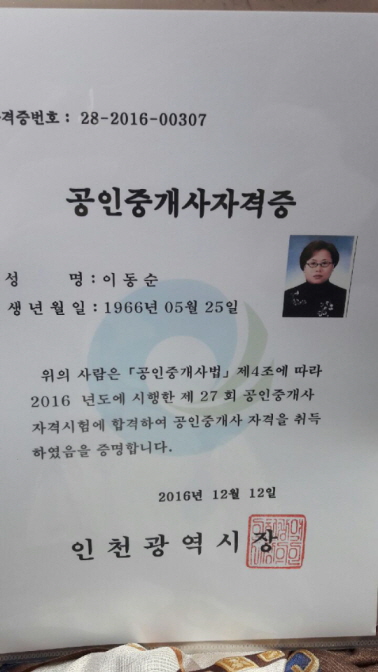 격증번호 : 28-2016-00307
공인중개사자격증
성 명 : 이동순
생년월일 : 1966년 05월 25일
위의 사람은 「공인중개사법」 제4조에 따라
2016 년도에 시행한 제 27 회 공인중개사
자격시험에 합격하여 공인중개사 자격을 취득
하였음을 증명합니다.
2016년 12월 12일
인천광역시장